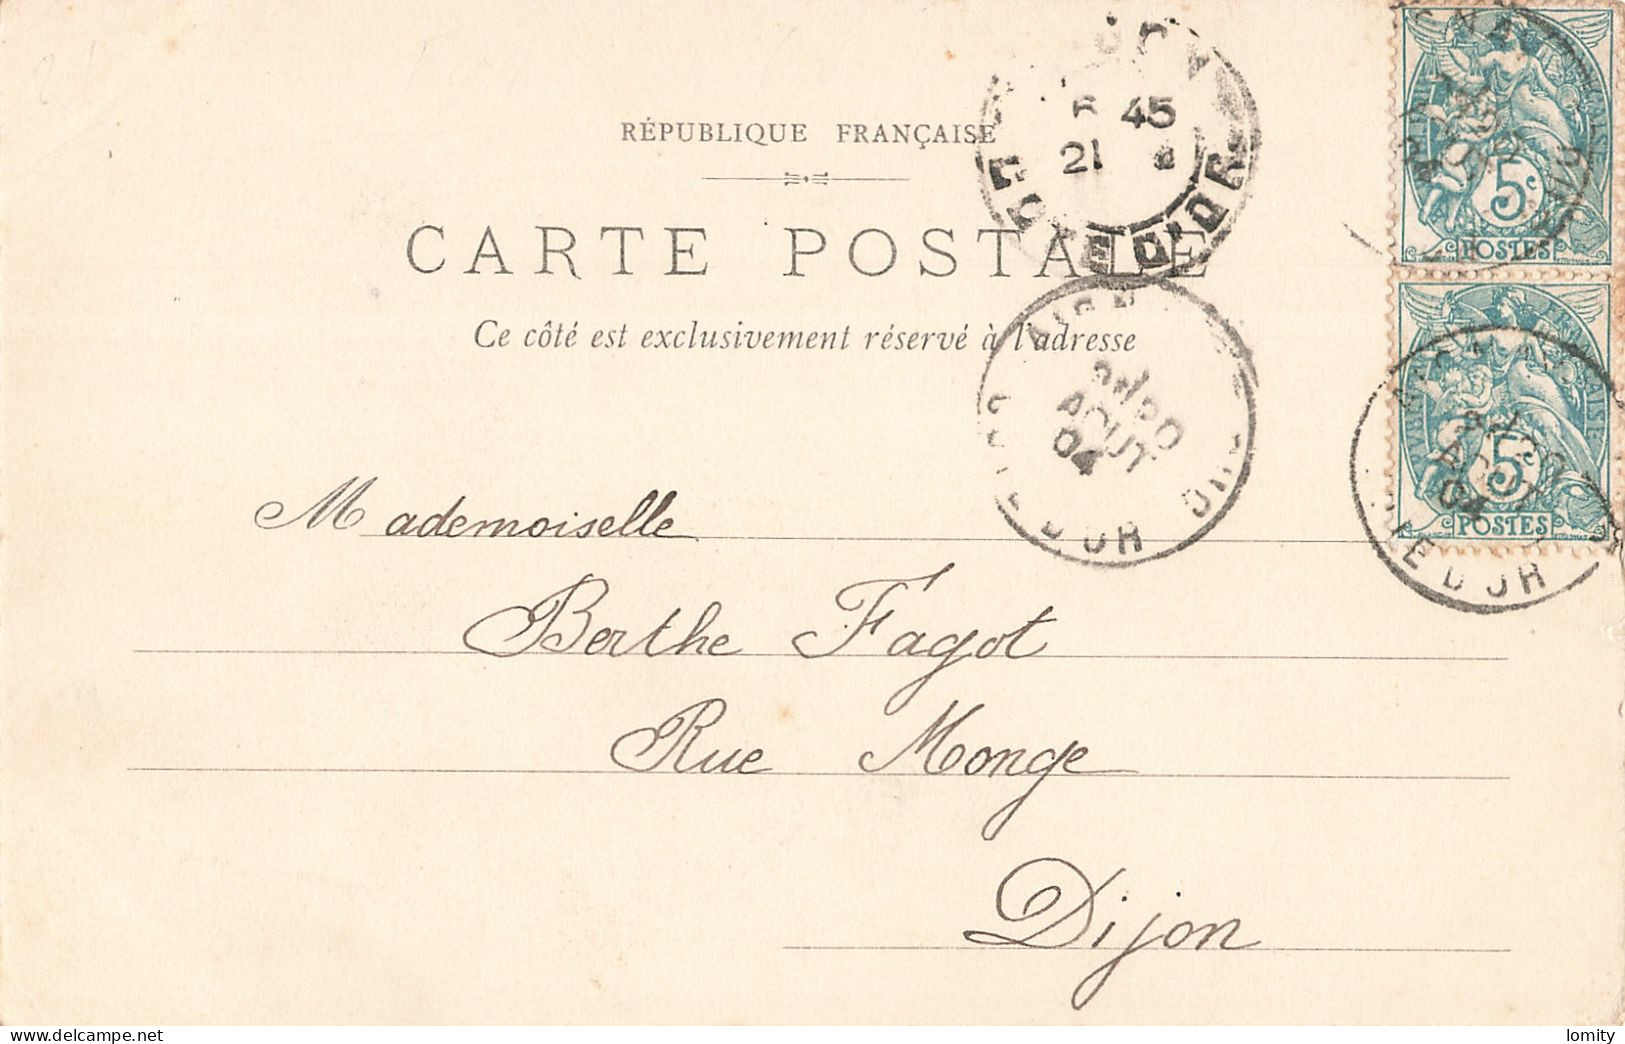 RÉPUBLIQUE FRANÇAISE
CARTE POSTALE
Ce côté est exclusivement réservé à l'adresse
Mademoiselle
Berthe Fagot
Rue Monge
Dijon
45
21
COTE D'OR
AOUT
04
D'OR
5c
POSTES
5c
POSTES
AOUT
04
D'OR
delcampe.net
lomity